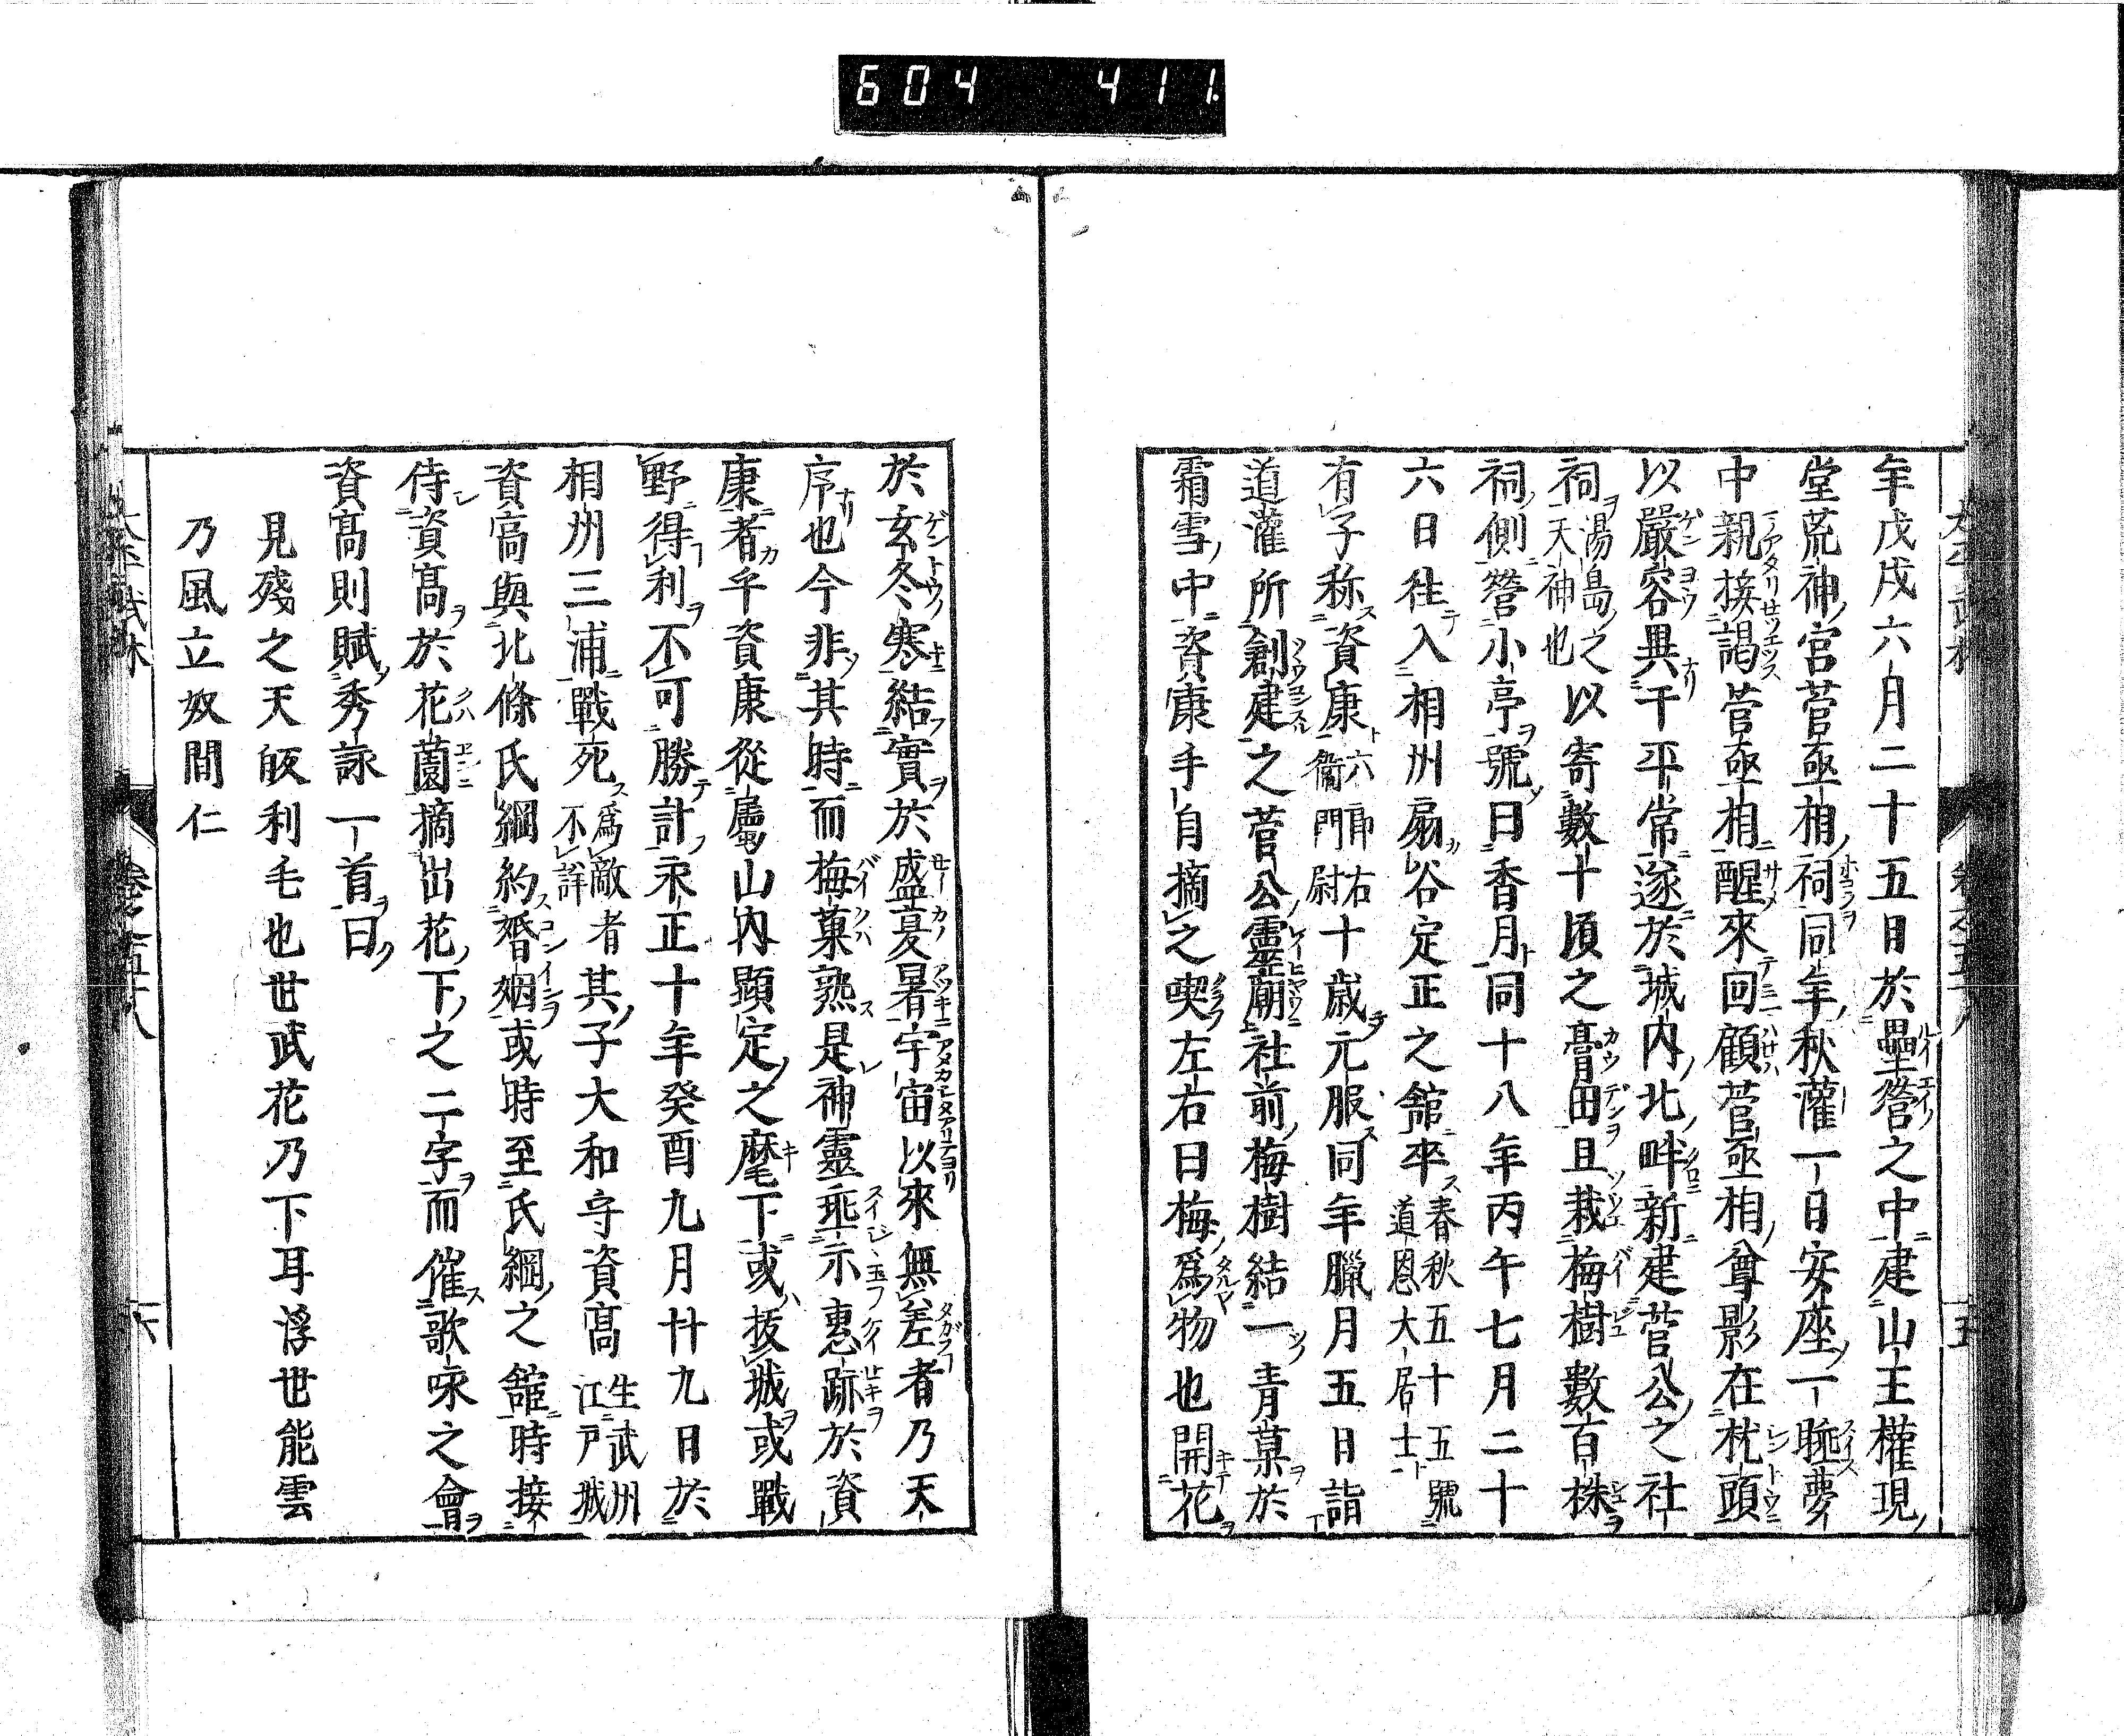 604 411
年戊戌六月二十五日於壘營之中建山王權現
堂荒神宮菅亟相祠同年秋灌一日安座一睡夢
中親接謁菅亟相醒來回顧菅亟相尊影在枕頭
以嚴容異干平常遂於城內北畔新建菅公之社
祠湯島之天神也以寄數十頃之膏田且栽梅樹數百株
祠側營小亭號曰香月同十八年丙午七月二十
六日往入相州扇谷定正之館卒春秋五十五號道恩大居士
有子称資康六郎右衞門尉十歳元服同年臘月五日詣
道灌所創建之菅公靈廟社前梅樹結一青菓於
霜雪中資康手自摘之喫左右曰梅爲物也開花
於玄冬寒結實於盛夏暑宇宙以來無差者乃天
序也今非其時而梅菓熟是神靈乖示惠跡於資
康者乎資康從屬山內顯定之麾下或拔城或戰
野得利不可勝計永正十年癸酉九月廿九日於
相州三浦戰死爲敵者不詳其子大和守資高生武州江戸城
資高與北條氏綱約婚姻或時至氏綱之舘時接
侍資高於花薗摘出花下之二字而催歌咏之會
資高則賦秀詠一首曰
見殘之天皈利毛也世武花乃下耳浮世能雲
乃風立奴間仁
六